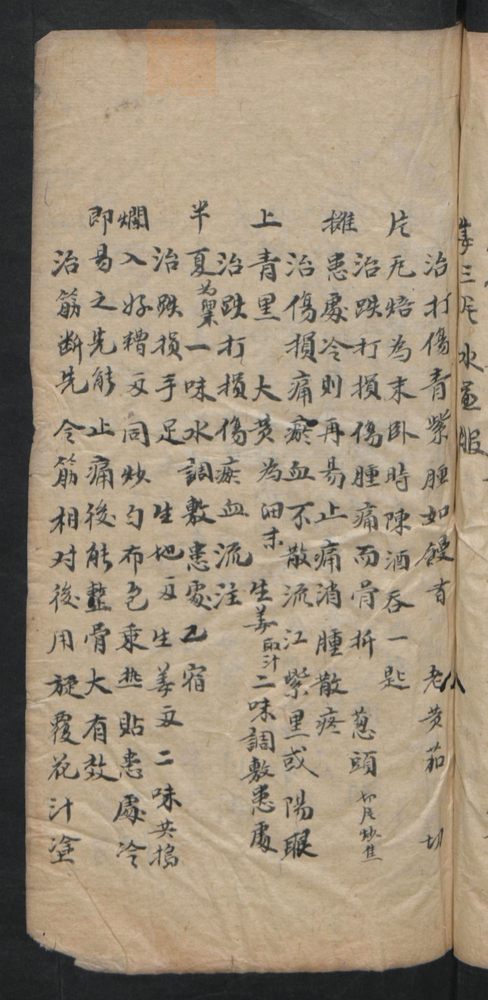 姜三片水煎服
治打傷青紫腫如饅首 老黄茄 切
片瓦焙為末臥時陳酒吞一匙
治跌打損傷腫痛而骨折 葱頭 切片炒焦
摊患處冷則再易止痛消腫散疼
治傷損痛瘀血不散流江紫黑或陽眼
上青黑 大黄為細末 生姜取汁二味調敷患處
治跌打損傷瘀血流注
半夏為一味水調敷患處乙宿
治跌損手足 生地 生姜 二味共搗
爛入好糟同炒勻布包乘热貼患處冷
即易之先能止痛後能整骨大有效
治筋断先令筋相对後用旋覆花汁塗